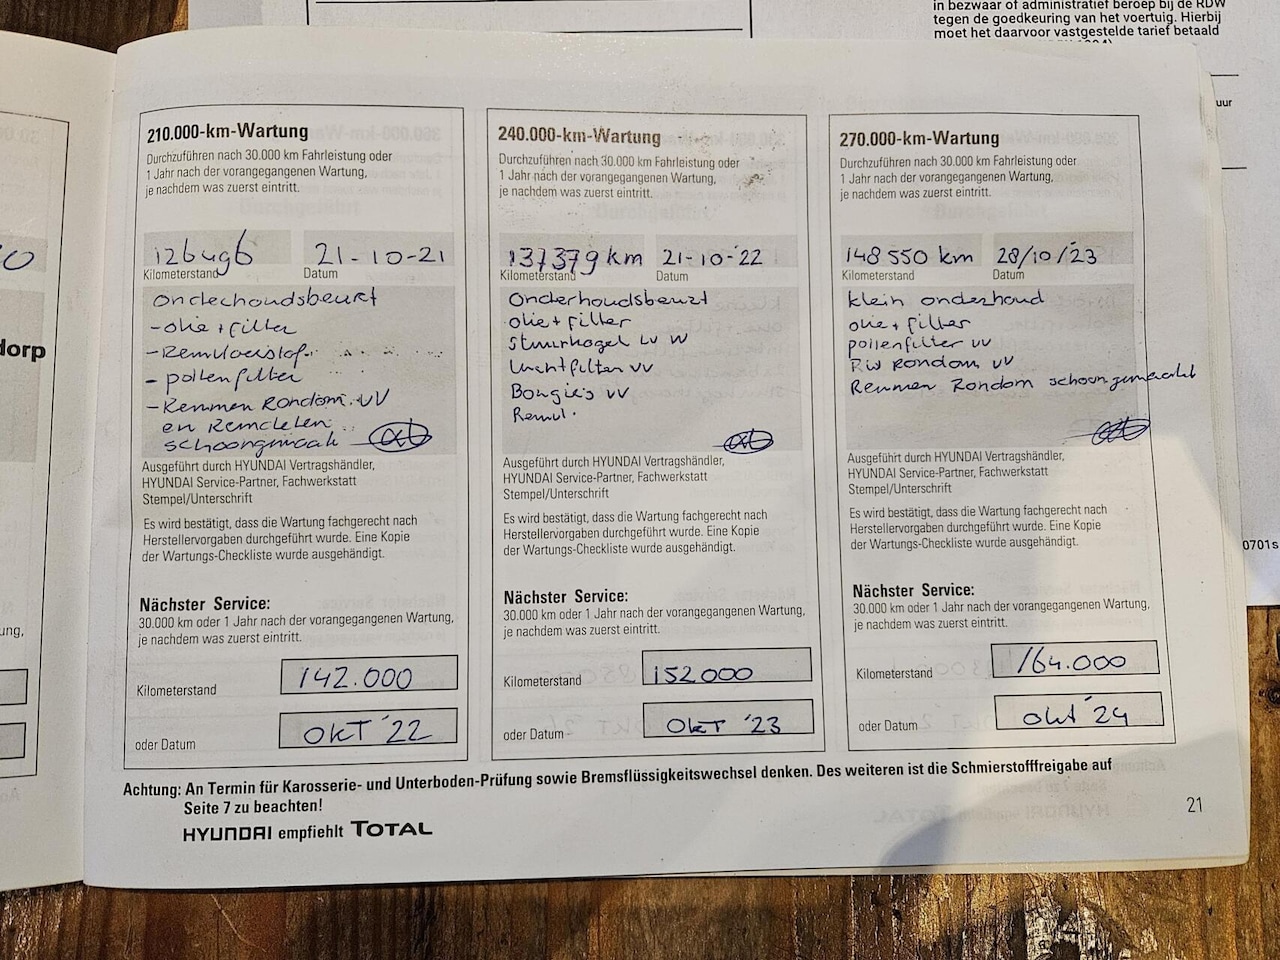 in bezwaar of administratief beroep bij de RDW
tegen de goedkeuring van het voertuig. Hierbij
moet het daarvoor vastgestelde tarief betaald
uur
0701s
dorp
ung,
210.000-km-Wartung
Durchzuführen nach 30.000 km Fahrleistung oder
1 Jahr nach der vorangegangenen Wartung,
je nachdem was zuerst eintritt.
126496 21-10-21
Kilometerstand Datum
Onderhoudsbeurt
- olie + filter
- Remvloeistof.
- pollenfilter
- Remmen Rondom. VV
en Remdelen
schoongemaak
Ausgeführt durch HYUNDAI Vertragshändler,
HYUNDAI Service-Partner, Fachwerkstatt
Stempel/Unterschrift
Es wird bestätigt, dass die Wartung fachgerecht nach
Herstellervorgaben durchgeführt wurde. Eine Kopie
der Wartungs-Checkliste wurde ausgehändigt.
Nächster Service:
30.000 km oder 1 Jahr nach der vorangegangenen Wartung,
je nachdem was zuerst eintritt.
Kilometerstand 142.000
oder Datum OKT '22
240.000-km-Wartung
Durchzuführen nach 30.000 km Fahrleistung oder
1 Jahr nach der vorangegangenen Wartung,
je nachdem was zuerst eintritt.
137379 km 21-10-'22
Kilometerstand Datum
Onderhoudsbeurt
olie + filter
Stuurkogel LV VV
Luchtfilter VV
Bougie's VV
Remvl.
Ausgeführt durch HYUNDAI Vertragshändler,
HYUNDAI Service-Partner, Fachwerkstatt
Stempel/Unterschrift
Es wird bestätigt, dass die Wartung fachgerecht nach
Herstellervorgaben durchgeführt wurde. Eine Kopie
der Wartungs-Checkliste wurde ausgehändigt.
Nächster Service:
30.000 km oder 1 Jahr nach der vorangegangenen Wartung,
je nachdem was zuerst eintritt.
Kilometerstand 152000
oder Datum OKT '23
270.000-km-Wartung
Durchzuführen nach 30.000 km Fahrleistung oder
1 Jahr nach der vorangegangenen Wartung,
je nachdem was zuerst eintritt.
148 550 km 28/10/'23
Kilometerstand Datum
klein onderhoud
olie + filter
pollenfilter VV
Rondom VV
Remmen Rondom schoongemaakt
Ausgeführt durch HYUNDAI Vertragshändler,
HYUNDAI Service-Partner, Fachwerkstatt
Stempel/Unterschrift
Es wird bestätigt, dass die Wartung fachgerecht nach
Herstellervorgaben durchgeführt wurde. Eine Kopie
der Wartungs-Checkliste wurde ausgehändigt.
Nächster Service:
30.000 km oder 1 Jahr nach der vorangegangenen Wartung,
je nachdem was zuerst eintritt.
Kilometerstand 164.000
oder Datum okt '24
Achtung: An Termin für Karosserie- und Unterboden-Prüfung sowie Bremsflüssigkeitswechsel denken. Des weiteren ist die Schmierstofffreigabe auf
Seite 7 zu beachten!
HYUNDAI empfiehlt TOTAL
21